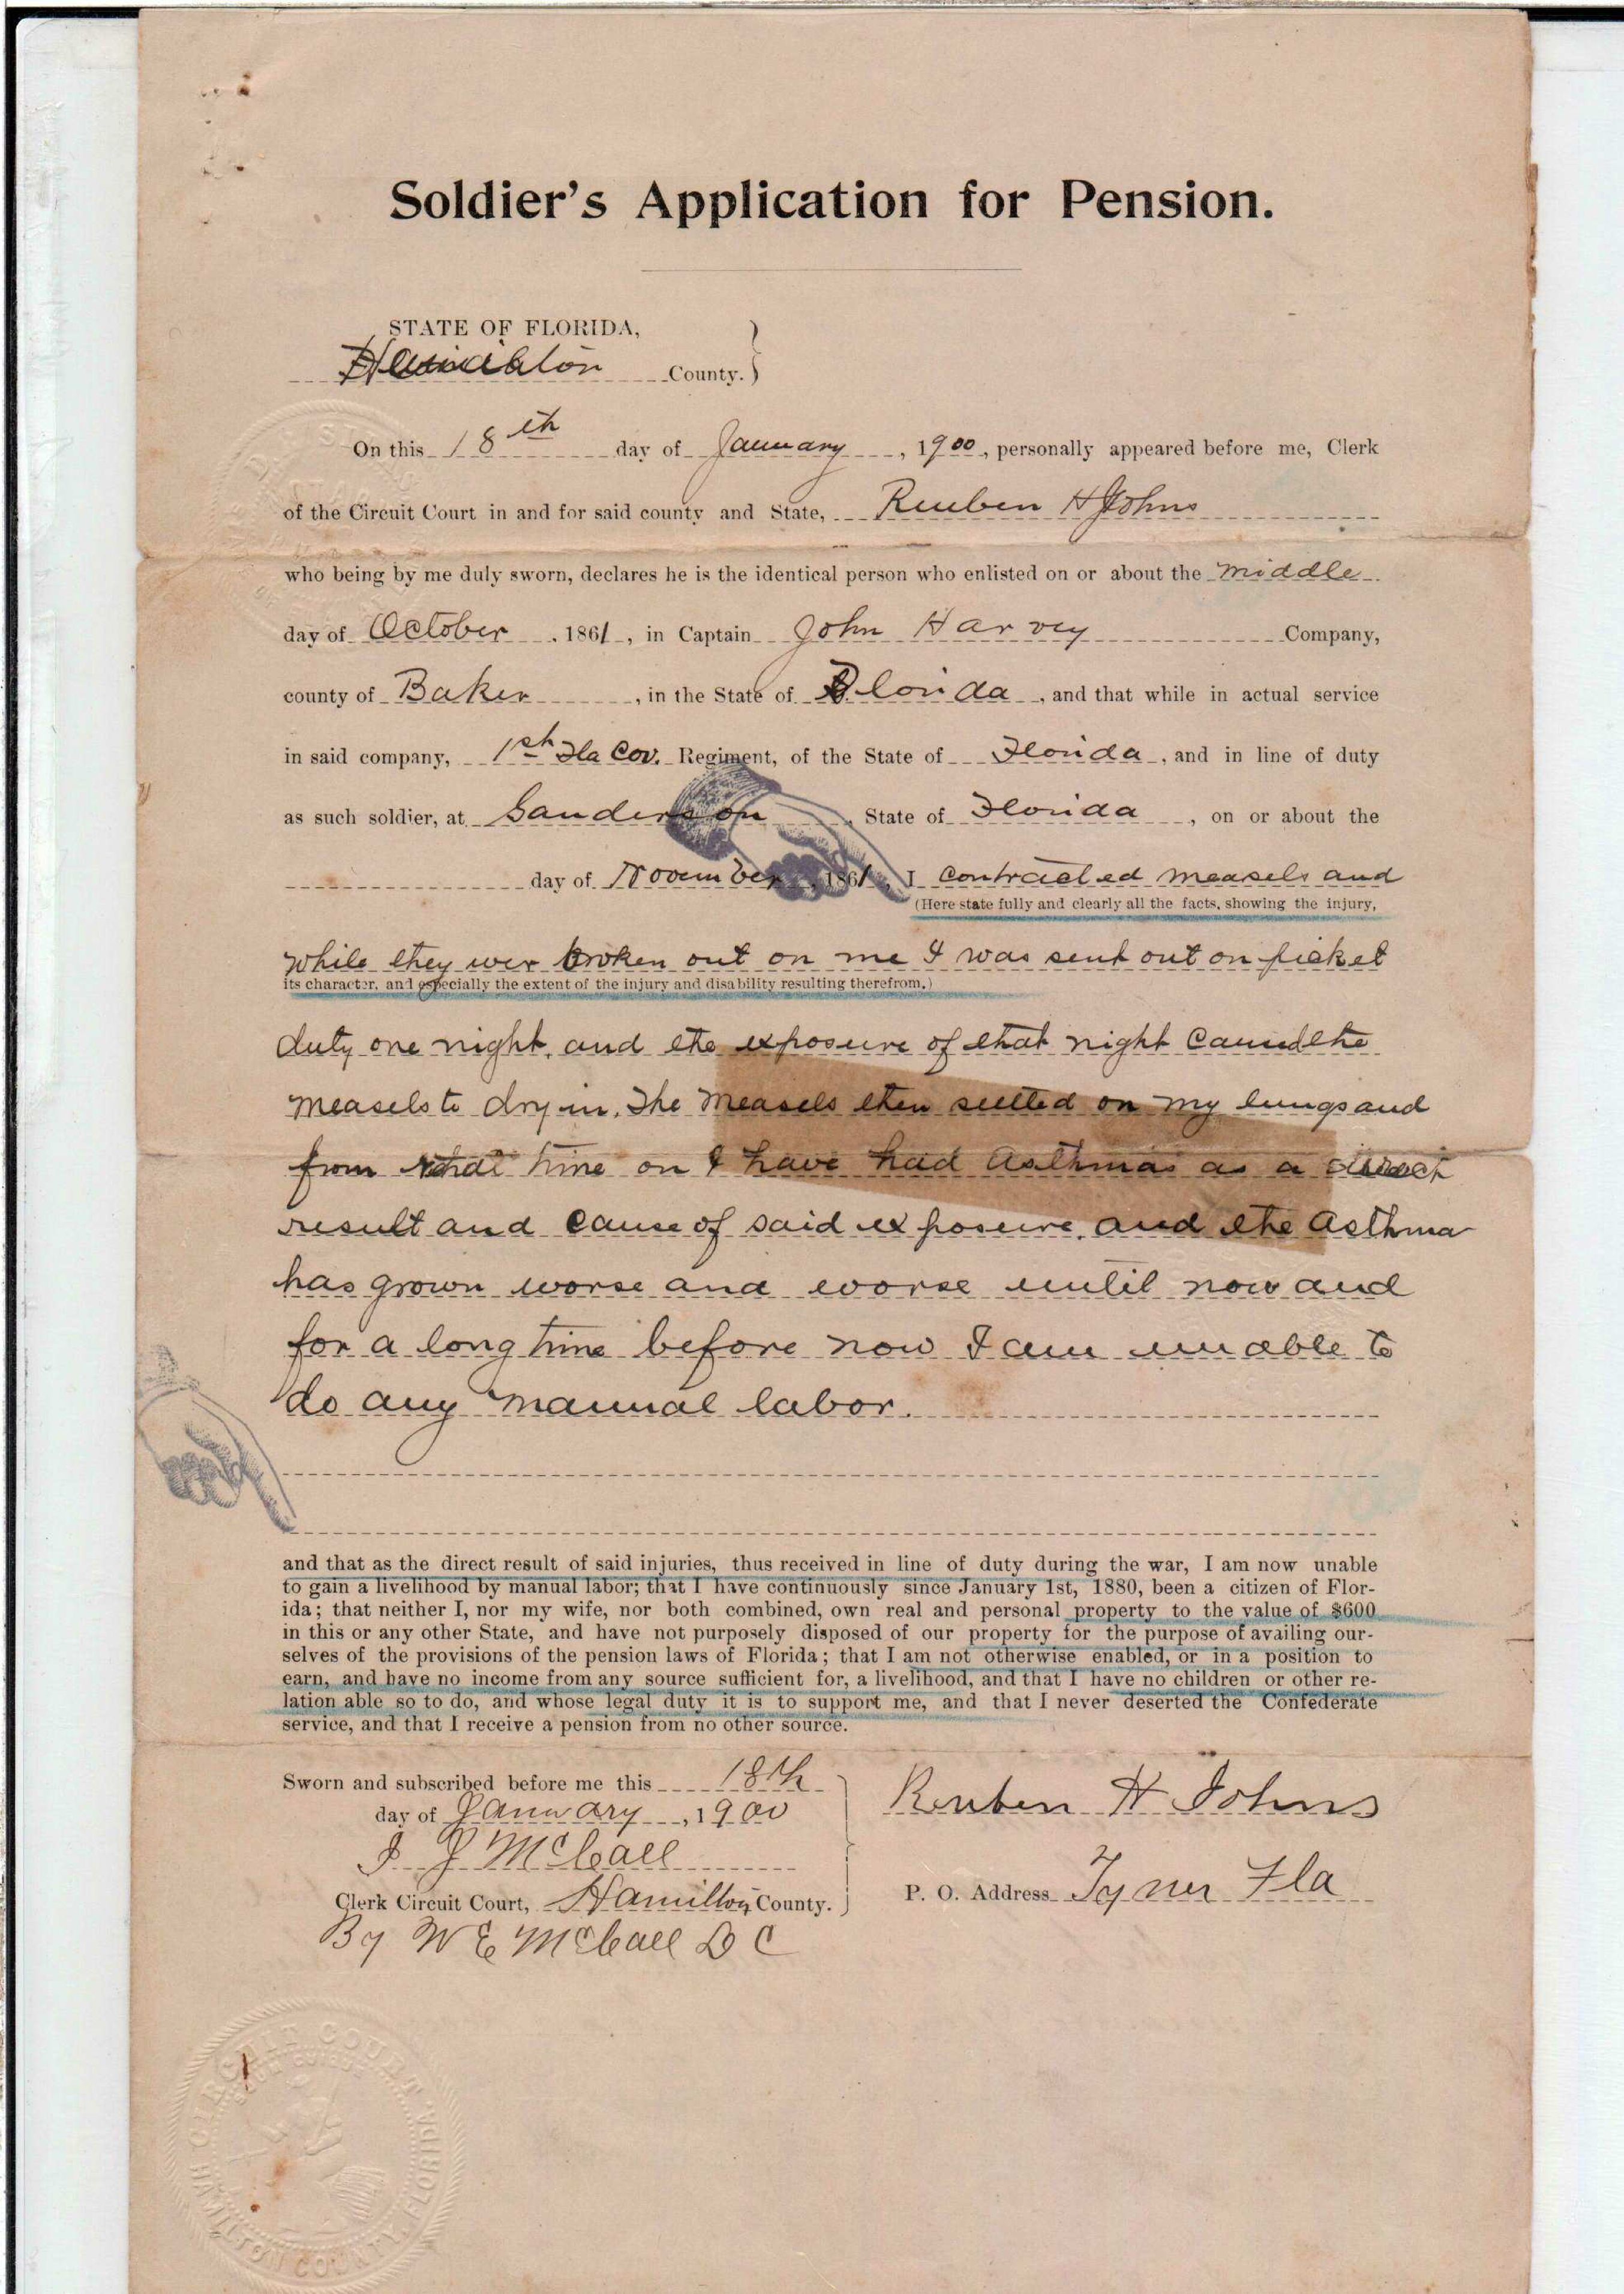 Soldier's Application for Pension.
STATE OF FLORIDA,
Hamilton County.
On this 18th day of January, 1900, personally appeared before me, Clerk
of the Circuit Court in and for said county and State, Reuben H Johns
who being by me duly sworn, declares he is the identical person who enlisted on or about the middle
day of October, 1861, in Captain John Harvey Company,
county of Baker, in the State of Florida, and that while in actual service
in said company, 1st Fla Cov. Regiment, of the State of Florida, and in line of duty
as such soldier, at Sanderson, State of Florida, on or about the
day of November, 1861, I contracted measels and
(Here state fully and clearly all the facts, showing the injury,
while they wer broken out on me I was sent out on picket
its character, and especially the extent of the injury and disability resulting therefrom.)
duty one night, and the exposure of that night caused the
measels to dry in. The measels then seetled on my lungs and
from that time on I have had Asthma as a direct
result and cause of said exposure, and the Asthma
has grown worse and worse until now and
for a long time before now I am unable to
do any manual labor.
and that as the direct result of said injuries, thus received in line of duty during the war, I am now unable
to gain a livelihood by manual labor; that I have continuously since January 1st, 1880, been a citizen of Flor-
ida; that neither I, nor my wife, nor both combined, own real and personal property to the value of $600
in this or any other State, and have not purposely disposed of our property for the purpose of availing our-
selves of the provisions of the pension laws of Florida; that I am not otherwise enabled, or in a position to
earn, and have no income from any source sufficient for, a livelihood, and that I have no children or other re-
lation able so to do, and whose legal duty it is to support me, and that I never deserted the Confederate
service, and that I receive a pension from no other source.
Sworn and subscribed before me this 18th
day of January, 1900
Reuben H Johns
J J McCall
Clerk Circuit Court, Hamilton County.
P. O. Address Tyner Fla
By W E McCall D C
CIRCUIT COURT
HAMILTON COUNTY, FLORIDA